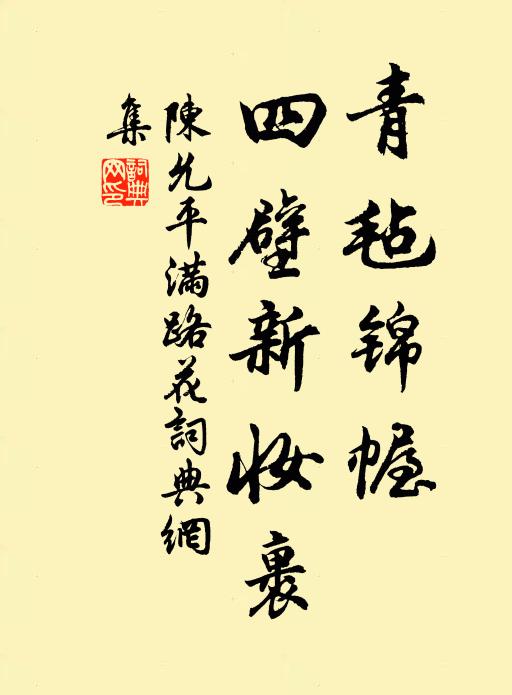 青毡锦幄
四壁新妆裹
陳允平满路花詞典網
集
詞典网印